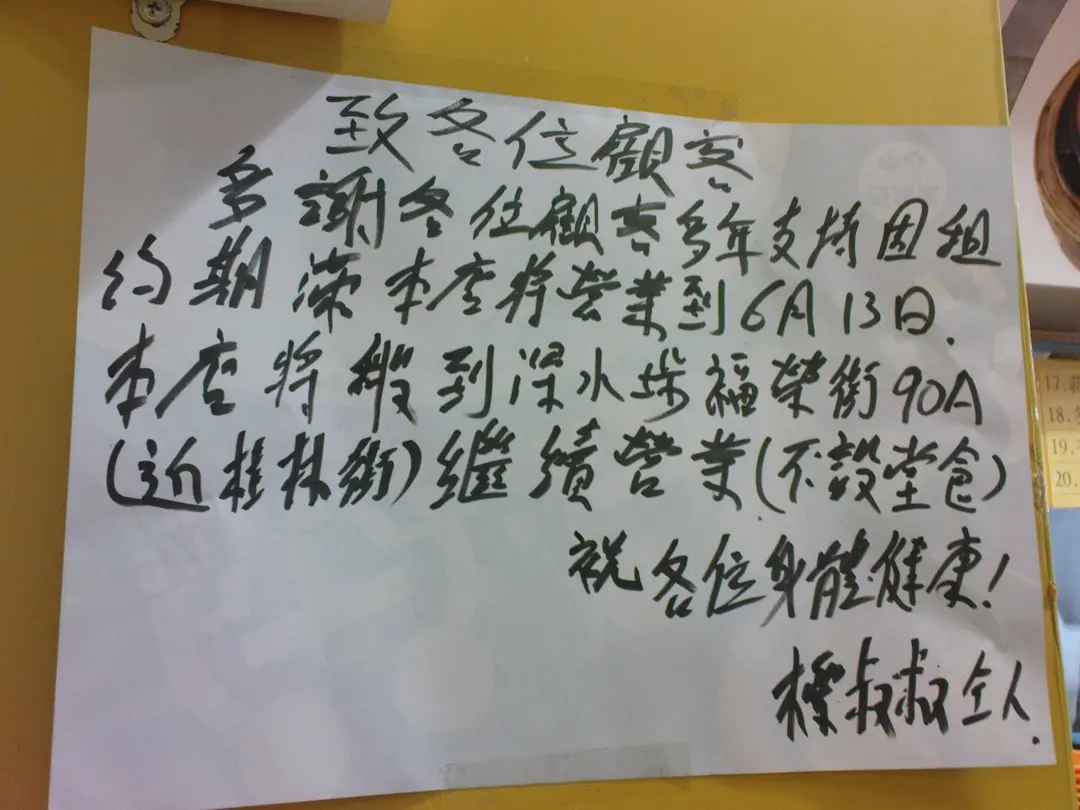 致各位顧客
多謝各位顧客多年支持因租
約期滿本店將營業到6月13日.
本店將搬到深水埗福榮街90A
(近桂林街)繼續營業(不設堂食)
祝各位身體健康!
標叔叔仝人.
17.
18.
19.
20.